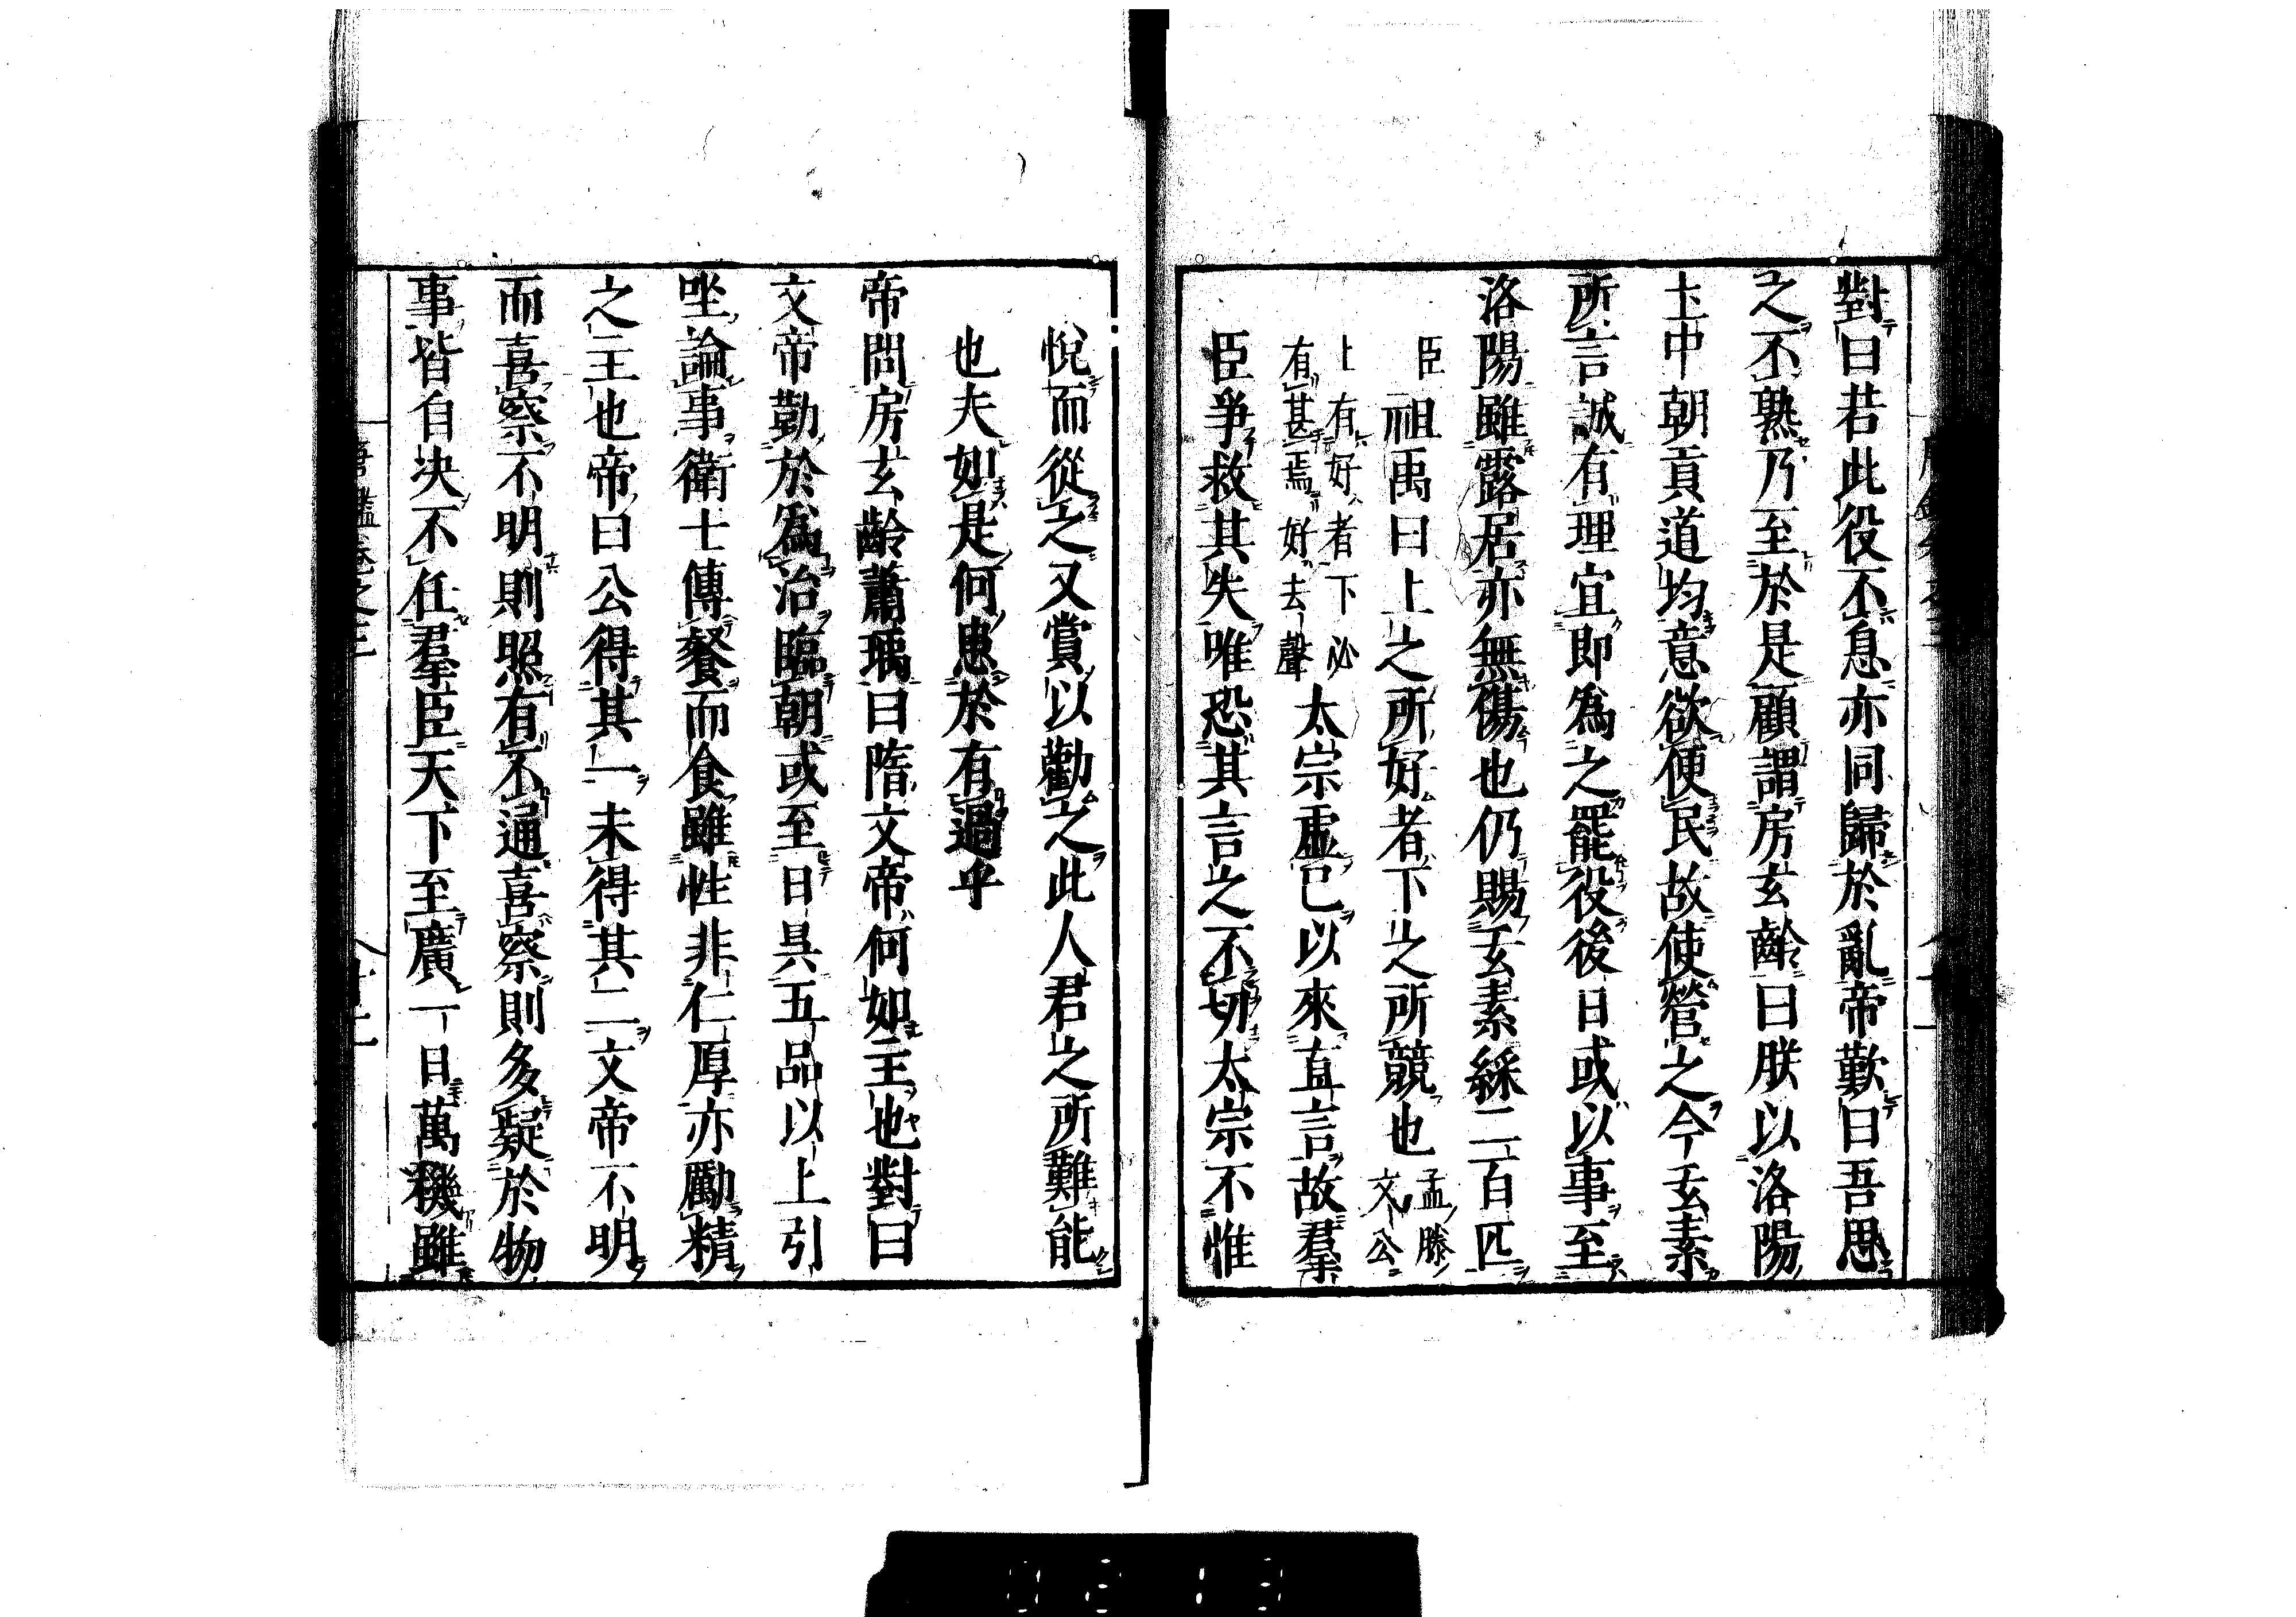 對曰若此役不息亦同歸於亂帝歎曰吾思
之不熟乃至於是顧謂房玄齡曰朕以洛陽
土中朝貢道均意欲便民故使營之今玄素
所言誠有理宜即爲之罷役後日或以事至
洛陽雖露居亦無傷也仍賜玄素綵二百匹
臣祖禹曰上之所好者下之所競也孟滕文公
上有好者下必有甚焉好去聲太宗虛已以來直言故羣
臣爭救其失唯恐其言之不切太宗不惟
悅而從之又賞以勸之此人君之所難能
也夫如是何患於有過乎
帝問房玄齡蕭瑀曰隋文帝何如主也對曰
文帝勤於爲治臨朝或至日昃五品以上引
坐論事衛士傳餐而食雖性非仁厚亦勵精
之主也帝曰公得其一未得其二文帝不明
而喜察不明則照有不通喜察則多疑於物
事皆自決不任羣臣天下至廣一日萬機雖